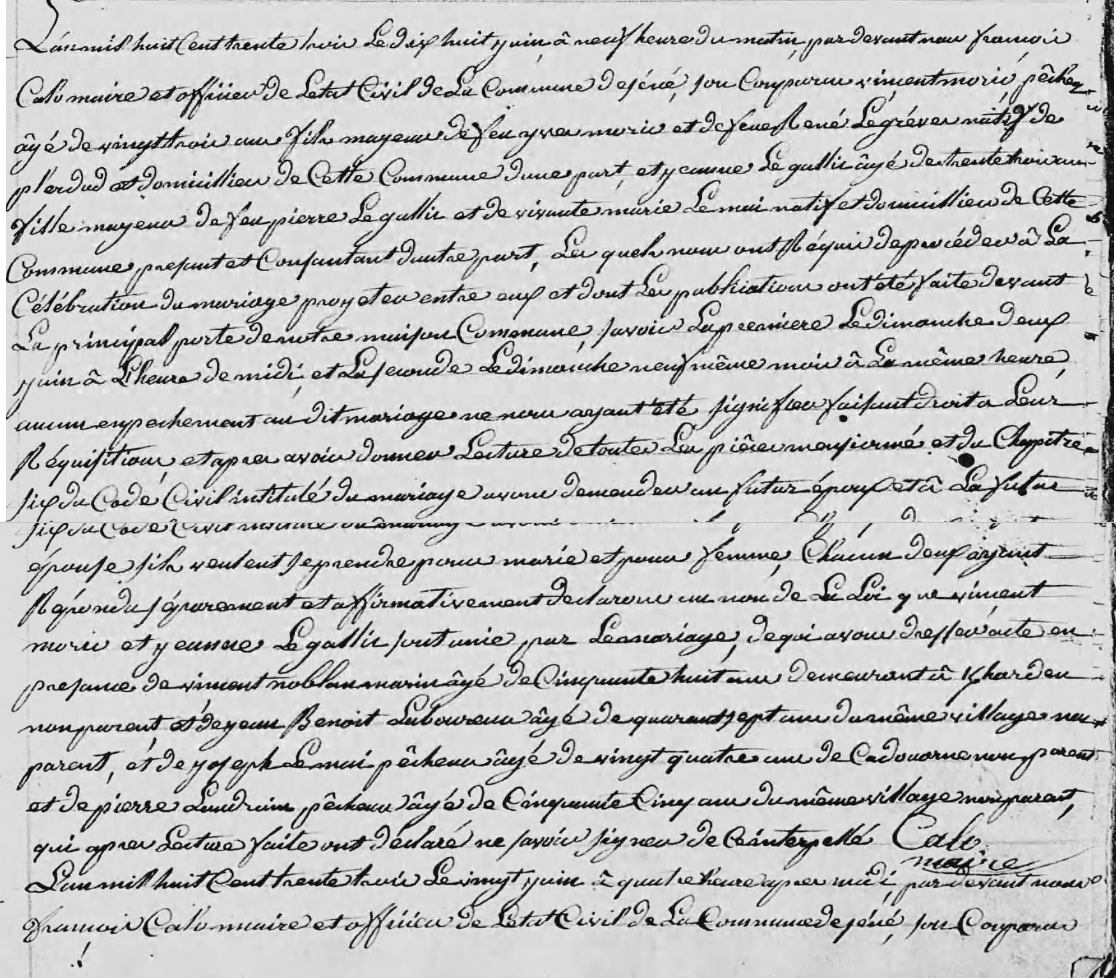 L'an mil huit Cent trente trois Le dix huit juin, à neuf heure du matin, par devant nous françois
Calo maire et officier de L'etat Civil de La Commune de séné, sou Comparu vincent morio, pêcheur
âgé de vingt trois ans fils mayeur de feu yves morio et de feue René Legréver natif de
pl'erdud et domicillier de Cette Commune d'une part, et yeanne Le gallic âgé de trente trois ans
fille mayeur de feu pierre Le gallic et de vivante marie Le mai natif et domicillier de Cette
Commune, presant et Consantant d'autre part, Les quels nous ont Réqui de procéder à La
Célébration du mariage proyeter entre eux et dont Les publiations ont été faite devant
La principal porte de notre maison Commune, savoir La premiere Le dimanche deux
juin à L'heure de midi, et La seconde Le dimanche neuf même mois à La même heure,
aucun enpechement au dit mariage ne nous ayant été signifier faisant droit a Leur
Réquisition, et apres avoir donner Lecture de toutes Les pièces et du Chapitre
six du Code Civil intitulé du mariage avons demender au futur époux et à La future
six du Code Civil
épouse s'ils veulent se prendre pour marie et pour femme, Chacun d'eux ayant
Répondu séparement et affirmativement declarons au nom de La Loi que vincent
morio et yeanne Le gallic sont unie par Le mariage, de qoi avons dresser acte en
presance de vincent noblan marin âgé de Cinquante huit ans demeurant à
non parent et de yean Benoit Laboureur âgé de quarant sept ans du même village non
parent, et de yoseph Le mai pêcheur âgé de vingt quatre ans de Cadouarne non parent
et de pierre Landrain pêcheur âgé de Cinquante Cinq ans du même village non parent,
qui apres Lecture faite ont déclaré ne savoir signer de Ce interpellé Calo
maire
L'an mil huit Cent trente trois Le vingt juin à quatre heure apres midi, par devant nous
françois Calo maire et officier de L'etat Civil de La Commune de séné, sou Comparu